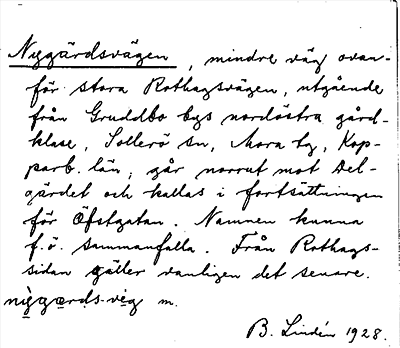 Nyggärdsvägen, mindre väg ovan-
för stora Rothagsvägen, utgående
från Gruddbo bys nordöstra gård-
klase, Sollerö sn, Mora tg, Kop-
parb. län; går norrut mot Del-
gärdet och kallas i fortsättningen
för Öfstgatan. Namnen kunna
f. ö. sammanfalla. Från Rothags-
sidan gäller vanligen det senare.
niggärds-vèg m.
B. Lindén 1928.